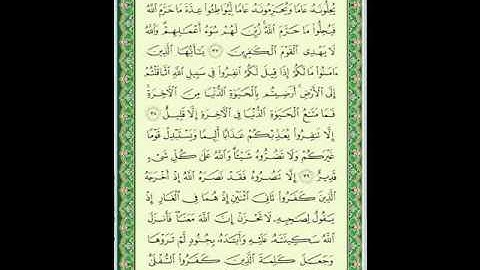 يُحِلُّونَهُۥ عَامًا وَيُحَرِّمُونَهُۥ عَامًا لِّيُوَاطِـُٔوا۟ عِدَّةَ مَا حَرَّمَ ٱللَّهُ
فَيُحِلُّوا۟ مَا حَرَّمَ ٱللَّهُ زُيِّنَ لَهُمْ سُوٓءُ أَعْمَـٰلِهِمْ وَٱللَّهُ
لَا يَهْدِى ٱلْقَوْمَ ٱلْكَـٰفِرِينَ ٣٧ يَـٰٓأَيُّهَا ٱلَّذِينَ
ءَامَنُوا۟ مَا لَكُمْ إِذَا قِيلَ لَكُمُ ٱنفِرُوا۟ فِى سَبِيلِ ٱللَّهِ ٱثَّاقَلْتُمْ
إِلَى ٱلْأَرْضِ أَرَضِيتُم بِٱلْحَيَوٰةِ ٱلدُّنْيَا مِنَ ٱلْـَٔاخِرَةِ
فَمَا مَتَـٰعُ ٱلْحَيَوٰةِ ٱلدُّنْيَا فِى ٱلْـَٔاخِرَةِ إِلَّا قَلِيلٌ ٣٨
إِلَّا تَنفِرُوا۟ يُعَذِّبْكُمْ عَذَابًا أَلِيمًا وَيَسْتَبْدِلْ قَوْمًا
غَيْرَكُمْ وَلَا تَضُرُّوهُ شَيْـًٔا وَٱللَّهُ عَلَىٰ كُلِّ شَىْءٍ
قَدِيرٌ ٣٩ إِلَّا تَنصُرُوهُ فَقَدْ نَصَرَهُ ٱللَّهُ إِذْ أَخْرَجَهُ
ٱلَّذِينَ كَفَرُوا۟ ثَانِىَ ٱثْنَيْنِ إِذْ هُمَا فِى ٱلْغَارِ إِذْ
يَقُولُ لِصَـٰحِبِهِۦ لَا تَحْزَنْ إِنَّ ٱللَّهَ مَعَنَا فَأَنزَلَ
ٱللَّهُ سَكِينَتَهُۥ عَلَيْهِ وَأَيَّدَهُۥ بِجُنُودٍ لَّمْ تَرَوْهَا
وَجَعَلَ كَلِمَةَ ٱلَّذِينَ كَفَرُوا۟ ٱلسُّفْلَىٰ